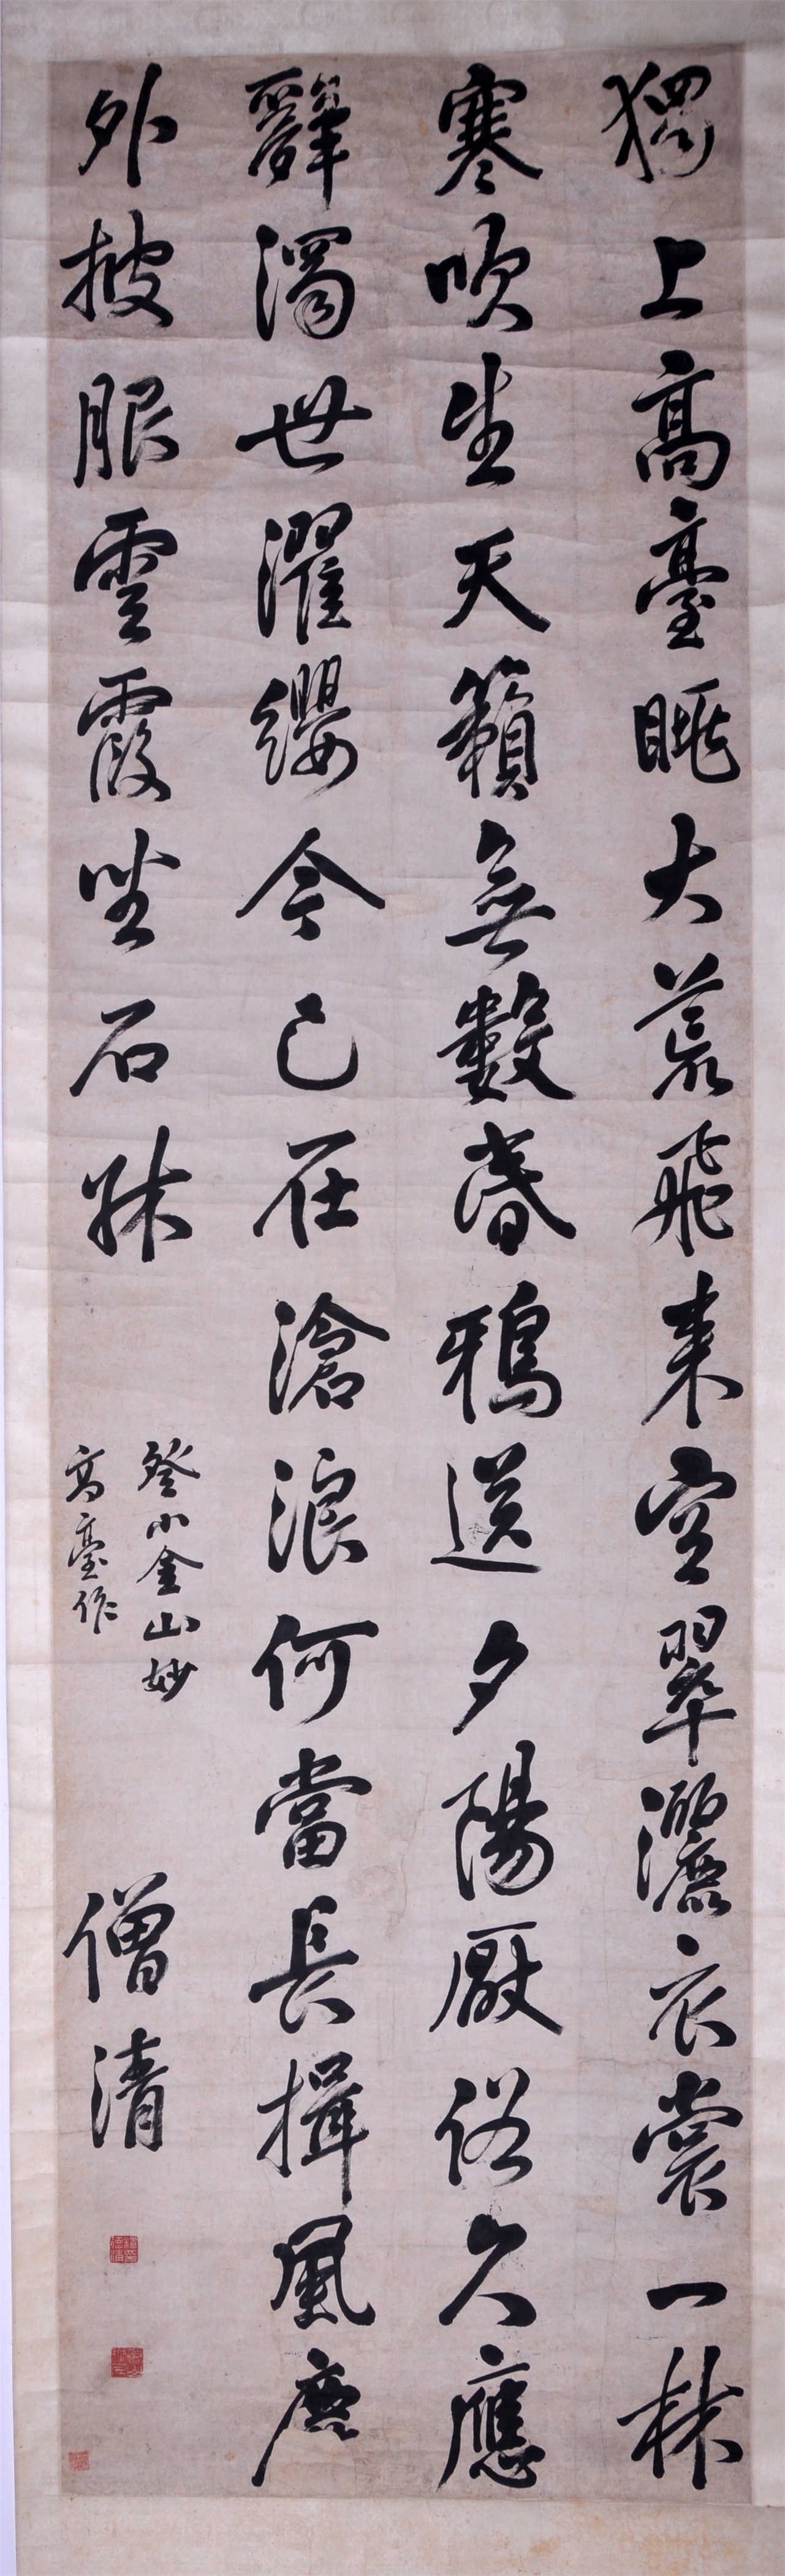 獨上高臺眺大荒飛來空翠灑衣裳一林
寒吹生天籟無數昏鴉送夕陽厭俗久應
辭濁世濯纓今已在滄浪何當長揖風塵
外披服雲霞坐石牀
登小金山妙
高臺作
僧清